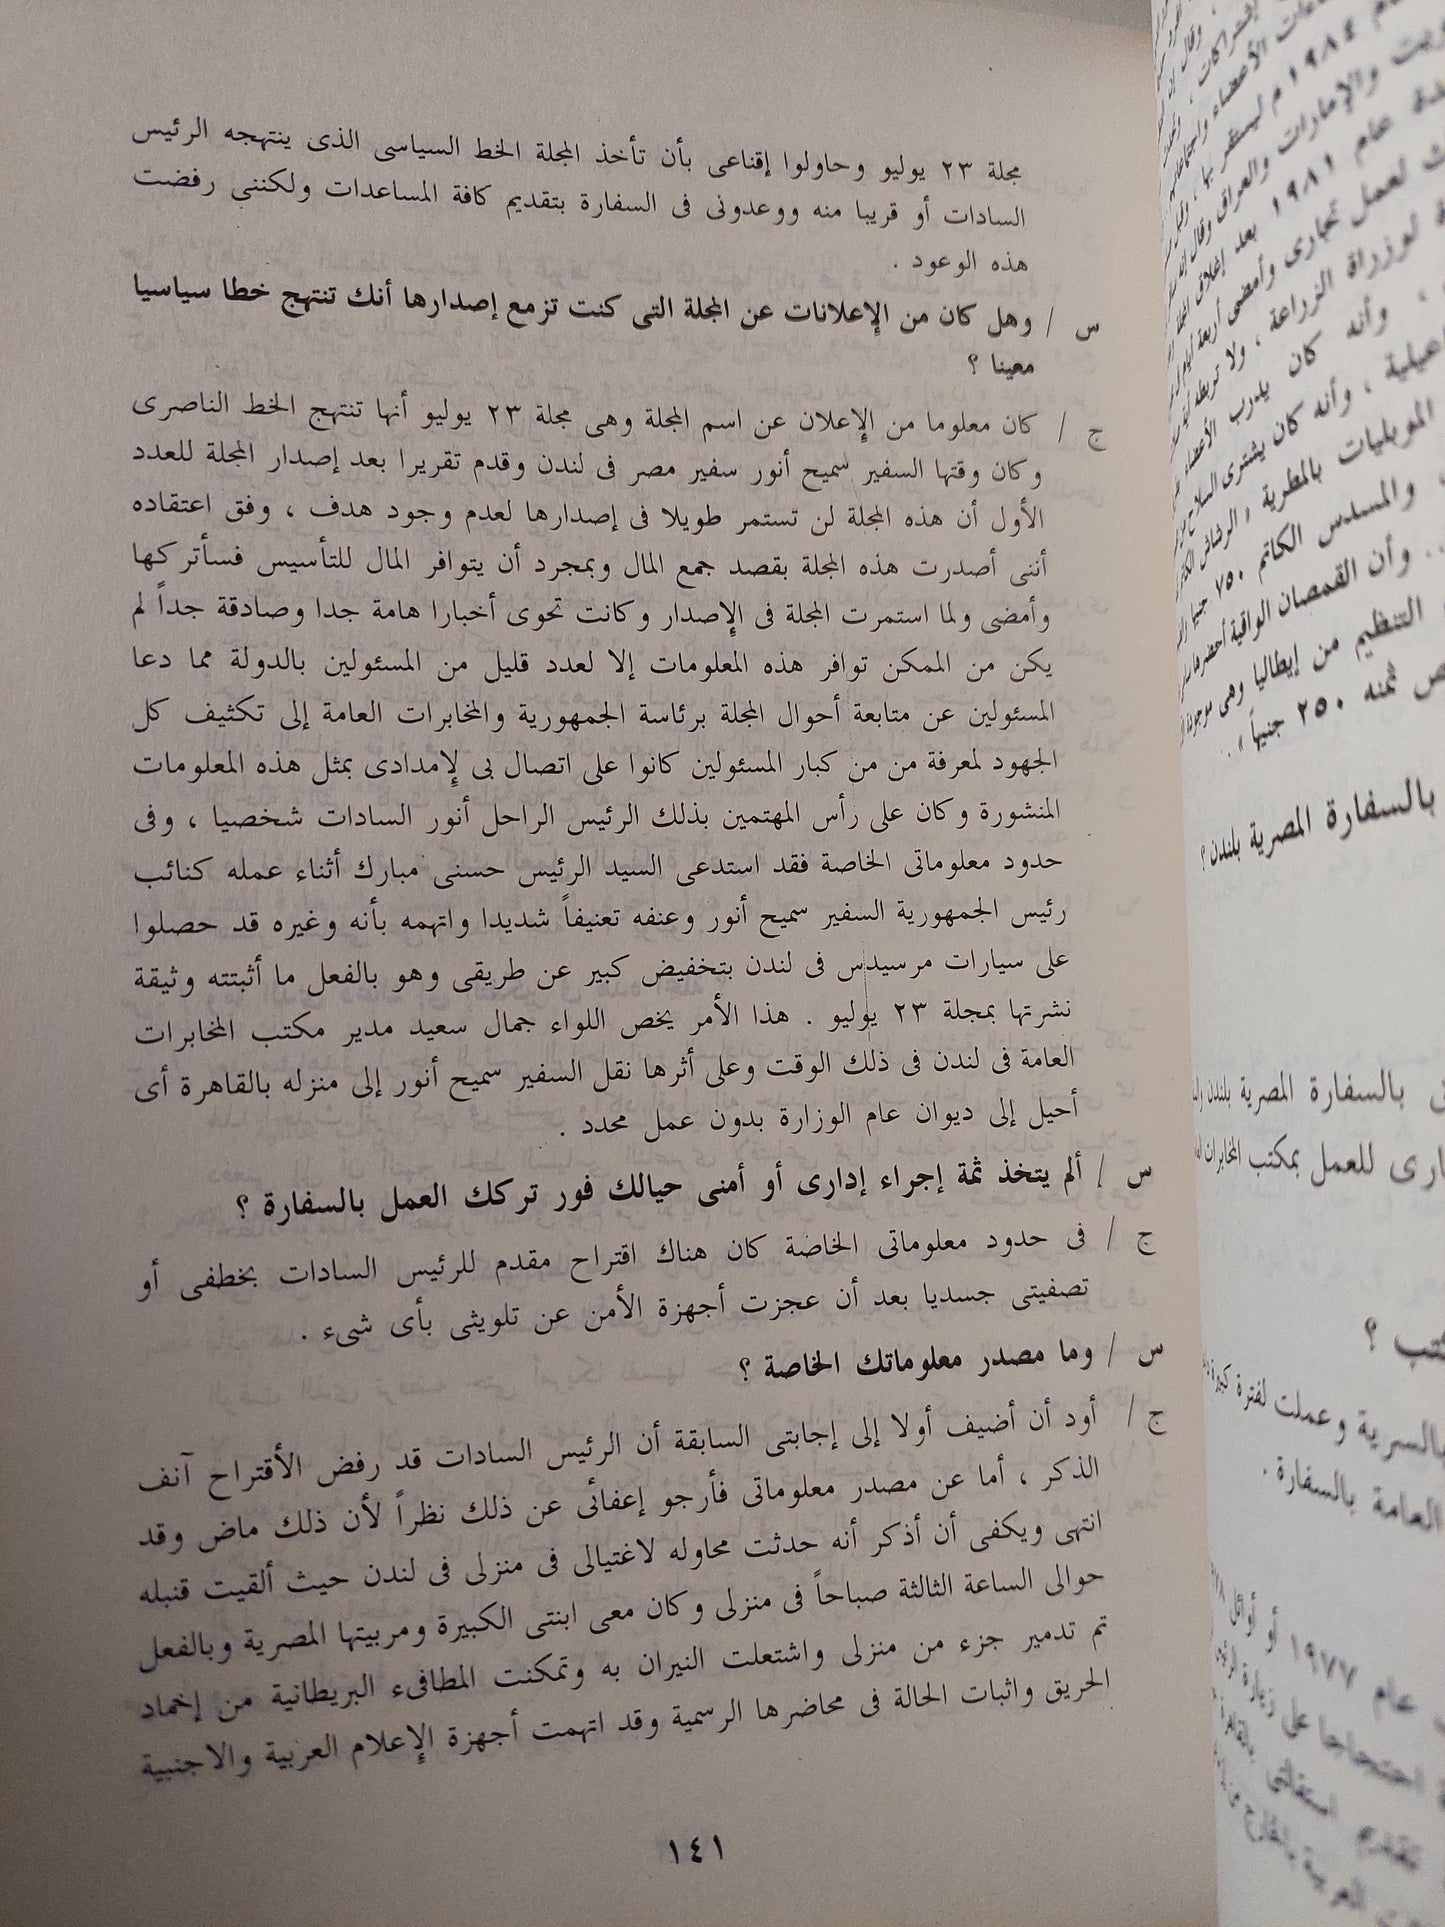 مجلة ٢٣ يوليو وحاولوا إقناعى بأن تأخذ المجلة الخط السياسى الذى ينتهجه الرئيس
السادات أو قريبا منه ووعدونى فى السفارة بتقديم كافة المساعدات ولكننى رفضت
هذه الوعود .
س / وهل كان من الإعلانات عن المجلة التى كنت تزمع إصدارها أنك تنتهج خطا سياسيا
معينا ؟
ج / كان معلوما من الإعلان عن اسم المجلة وهى مجلة ٢٣ يوليو أنها تنتهج الخط الناصرى
وكان وقتها السفير سميح أنور سفير مصر فى لندن وقدم تقريرا بعد إصدار المجلة للعدد
الأول أن هذه المجلة لن تستمر طويلا فى إصدارها لعدم وجود هدف ، وفق اعتقاده
أننى أصدرت هذه المجلة بقصد جمع المال وبمجرد أن يتوافر المال للتأسيس فسأتركها
وأمضى ولما استمرت المجلة فى الإصدار وكانت تحوى أخبارا هامة جدا وصادقة جداً لم
يكن من الممكن توافر هذه المعلومات إلا لعدد قليل من المسئولين بالدولة مما دعا
المسئولين عن متابعة أحوال المجلة برئاسة الجمهورية والمخابرات العامة إلى تكثيف كل
الجهود لمعرفة من من كبار المسئولين كانوا على اتصال بى لإمدادى بمثل هذه المعلومات
المنشورة وكان على رأس المهتمين بذلك الرئيس الراحل أنور السادات شخصيا ، وفى
حدود معلوماتى الخاصة فقد استدعى السيد الرئيس حسنى مبارك أثناء عمله كنائب
رئيس الجمهورية السفير سميح أنور وعنفه تعنيفاً شديدا واتهمه بأنه وغيره قد حصلوا
على سيارات مرسيدس فى لندن بتخفيض كبير عن طريقى وهو بالفعل ما أثبتته وثيقة
نشرتها بمجلة ٢٣ يوليو . هذا الأمر يخص اللواء جمال سعيد مدير مكتب المخابرات
العامة فى لندن فى ذلك الوقت وعلى أثرها نقل السفير سميح أنور إلى منزله بالقاهرة أى
أحيل إلى ديوان عام الوزارة بدون عمل محدد .
س / ألم يتخذ ثمة إجراء إدارى أو أمنى حيالك فور تركك العمل بالسفارة ؟
ج / فى حدود معلوماتى الخاضة كان هناك اقتراح مقدم للرئيس السادات بخطفى أو
تصفيتى جسديا بعد أن عجزت أجهزة الأمن عن تلويثى بأى شىء .
س / وما مصدر معلوماتك الخاصة ؟
ج / أود أن أضيف أولا إلى إجابتى السابقة أن الرئيس السادات قد رفض الأقتراح آنف
الذكر ، أما عن مصدر معلوماتى فأرجو إعفائى عن ذلك نظراً لأن ذلك ماض وقد
انتهى ويكفى أن أذكر أنه حدثت محاوله لاغتيالى فى منزلى فى لندن حيث ألقيت قنبله
حوالى الساعة الثالثة صباحاً فى منزلى وكان معى ابنتى الكبيرة ومربيتها المصرية وبالفعل
تم تدمير جزء من منزلى واشتعلت النيران به وتمكنت المطافىء البريطانية من إخماد
الحريق واثبات الحالة فى محاضرها الرسمية وقد اتهمت أجهزة الإعلام العربية والاجنبية
١٤١
١٩٨٤ م ليستقر بها
والإمارات والعراق وقال إنه
عام ١٩٨١ بعد إغلاق
لعمل تجارى وأمضى أربعة أيام
لوزارة الزراعة ، ولا تربطه
، وأنه كان يدرب الأعضاء
، وأنه كان يشترى السلاح
الموبليات بالمطرية
والمسدس الكاتم ٧٥٠ جنيها
وأن القمصان الواقية أحضرها
التنظيم من إيطاليا وهى موجودة
ثمنه ٢٥٠ جنيهاً » .
بالسفارة المصرية بلندن ؟
بالسفارة المصرية بلندن
للعمل بمكتب المخابرات
؟
بالسرية وعملت لفترة كبيرة
العامة بالسفارة .
عام ١٩٧٧ أو أوائل
احتجاجا على زيارة
استقالتى